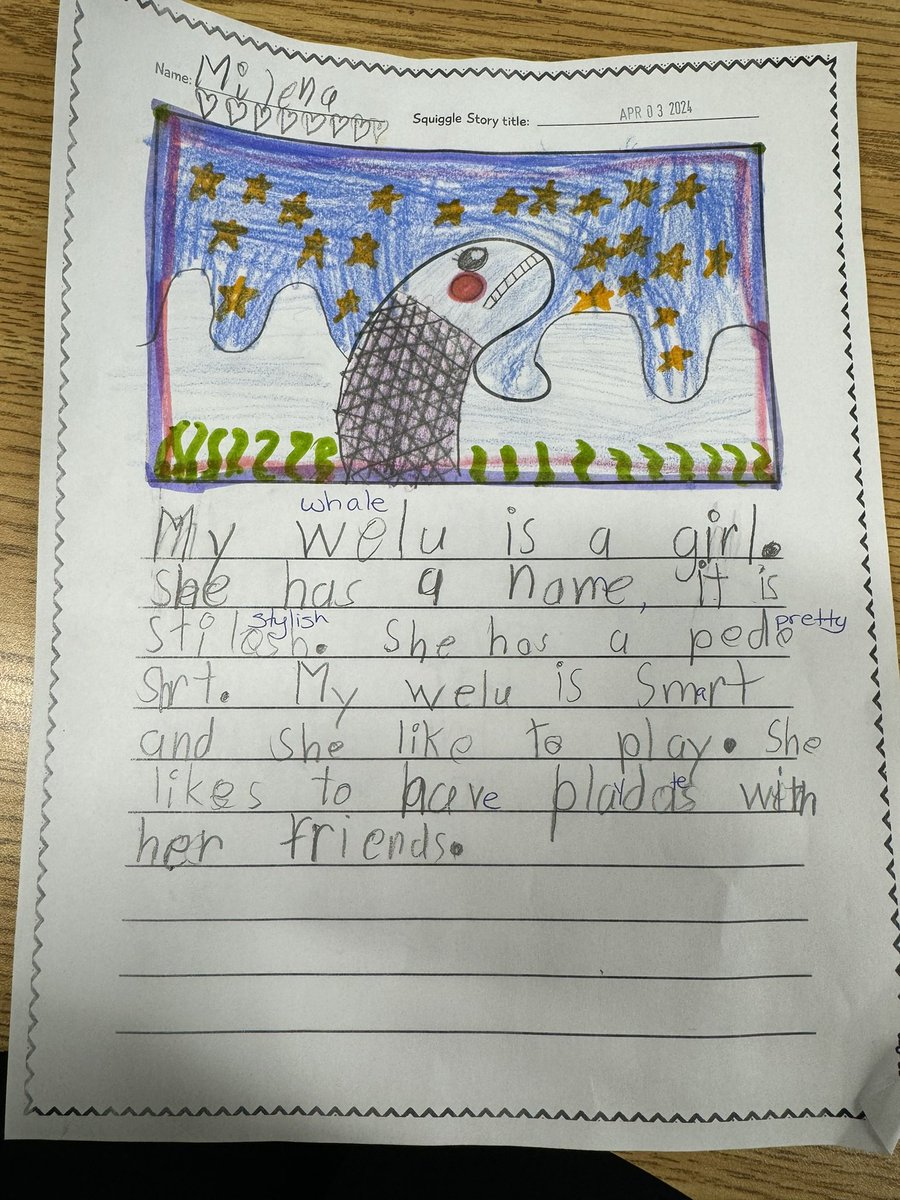 Name: Milena
Squiggle Story title: APR 03 2024
whale
My welu is a girl.
She has a name, it is
stylish pretty
stilosh. She has a pede
Shrt. My welu is Smart
and she like to play. She
likes to have playdates with
her friends.